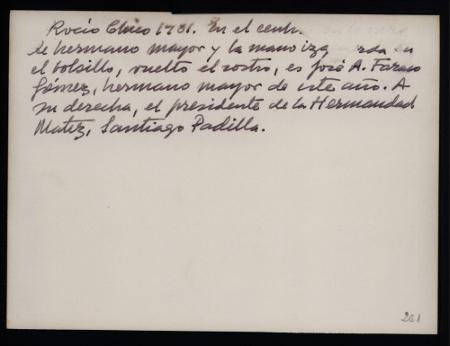 Rocío Chico 1981. En el centr
de hermano mayor y la mano izq rda en
el bolsillo, vuelto el rostro, es José A. Faraco
Gómez, hermano mayor de este año. A
su derecha, el presidente de la Hermandad
Matriz, Santiago Padilla.
261